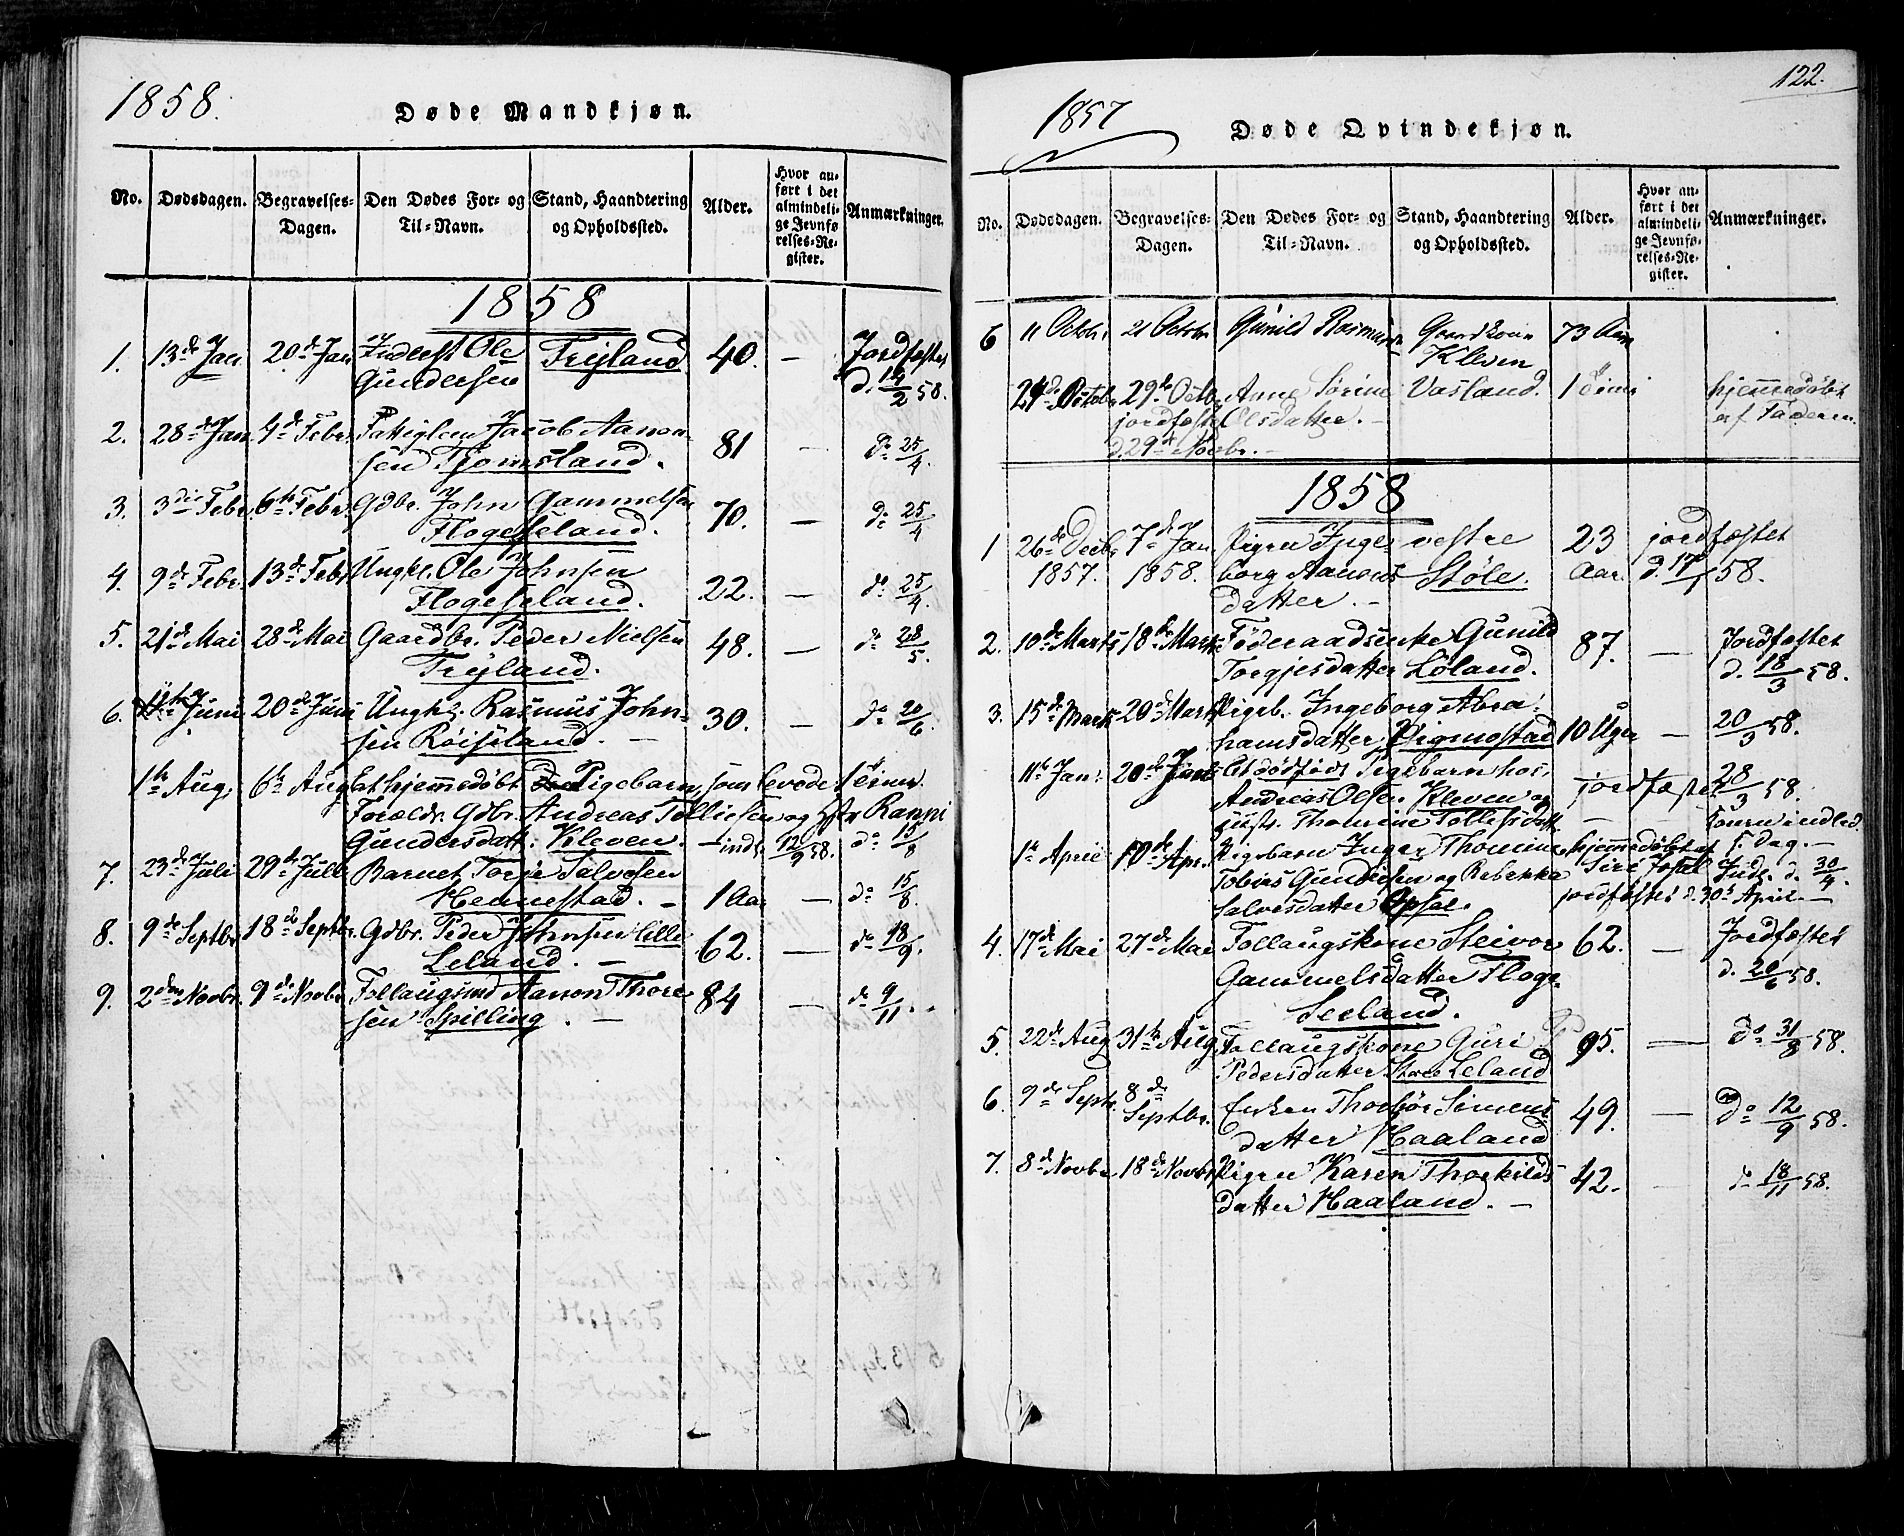 1858.
Døde Mandkjøn.
No. Dødsdagen. Begravelses-Dagen. Den Dødes For- og Til-Navn. Stand, Haandtering og Opholdssted. Alder. Hvor anført i det almindelige Jevnførelses-Register. Anmærkninger.
1858
1. 13de Jan. 20de Jan Inderst Ole Tryland 40. — Jordfæstet
Gundersen d. 14/2 58.
2. 28de Jan 4de Febr. Fattiglem Jacob Aanon- 81 — do 25/4.
sen Tjomsland.
3. 3die Febr. 6te Febr. Gdbr. John Gammelsen 70. — do 25/4
Flogeseland.
4. 9de Febr. 13de Febr Ungkl. Ole Johnsen 22. — do 25/4.
Flogeseland.
5. 21de Mai 28de Mai Gaardbr. Peder Nielsen 48. — do 28/5.
Tryland.
6. 11te Juni 20de Juni Ungkl. Rasmus John- 30. — do 20/6.
sen Røiseland. —
1te Aug. 6te Aug Et hjemmedøbt Pigebarn, som levede 1 Time.
Forældr. Gdbr. Andreas Tolliesen og Hstr Ranni
Gundersdatt. Kleven. — indl. 12/9 58. do 15/8
7. 23de Juli 29de Juli Barnet Torje Salvesen
Hennestad. — 1 Aar — do 15/8.
8. 9de Septbr. 18de Septbr. Gdbr. Peder Johnsen lille 62. — do 18/9.
Leland. —
9. 2den Novbr. 9de Novbr. Follaugsmd Aanon Thore- 84 — do 9/11.
sen Spilling. —
122.
1857
Døde Qvindekjøn.
No. Dødsdagen. Begravelses-Dagen. Den Dødes For- og Til-Navn. Stand, Haandtering og Opholdssted. Alder. Hvor anført i det almindelige Jevnførelses-Register. Anmærkninger.
6 11 Octbr. 21 Octbr Gunild Rasmusd. Gaardkone 73 Aar
Kleven
29de Octb. Anne Sørine Vasland. 1 Time hjemmedøbt
jordfæstet Olsdatter. — af Faderen.
d. 29de Novbr. —
1858
1 26de Decbr 7de Jan. Pigen Inge- vestre 23 jordfæstet
1857. 1858. borg Aanons- Støle. Aar. d. 17/1 58.
datter. —
2. 10de Marts 18de Marts Føderaadsenke Gunild 87. — Jordfæstet
Torgjesdatter Løland. d. 18/3 58.
3. 15de Marts 20de Marts Pigeb. Ingeborg Abra- 10 Uger — 20/3 58.
hamsdatter Vigmostad
11te Jan. 20de Et dødfødt Pigebarn hos jordfæstet 28/3 58.
Andreas Olsen Kleven og
Hustr. Thomine Tollefsdatt.
1te April 10de Apr. Pigebarn Inger Thomine hjemmedøbt af
Tobias Gundersen og Rebekka Siri Indl. d. 30/4.
Salvesdatter Opsal. jordfæstet d. 30te April. —
4. 17de Mai 27de Mai Follaugskone Steivor 62. — Jordfæstet
Gammelsdatter Floge- d. 20/6 58.
seeland.
5. 22de Aug 31te Aug Follaugskone Guri 95. — do 31/8 58.
Pedersdatter Store Leland
6. 9de Septr. 8de Septbr. Enken Thorbør Simens- 49. — do 12/9 58.
datter Haaland
7. 8de Novbr 18de Novbr. Pigen Karen Thorkilds- 42. — do 18/11 58.
datter Haaland. —